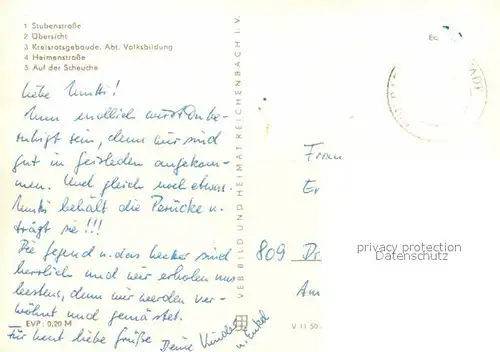 1 Stubenstraße
2 Übersicht
3 Kreisratsgebäude, Abt. Volksbildung
4 Heimenstraße
5 Auf der Scheuche
Liebe Mutti!
Nun endlich wirst Du be-
ruhigt sein, denn wir sind
gut in Geisleden angekom-
men. Und gleich noch etwas.
Mutti behält die Perücke u.
trägt sie!!!
Die Gegend u. das Wetter sind
herrlich und wir erholen uns
bestens, denn wir werden ver-
wöhnt und gemästet.
Für heut liebe Grüße Deine Kinder
u. Enkel
EVP: 0,20 M
VEB BILD UND HEIMAT REICHENBACH I. V.
Frau
Er
809 Dr
Am
V 11 50
privacy protection
Datenschutz